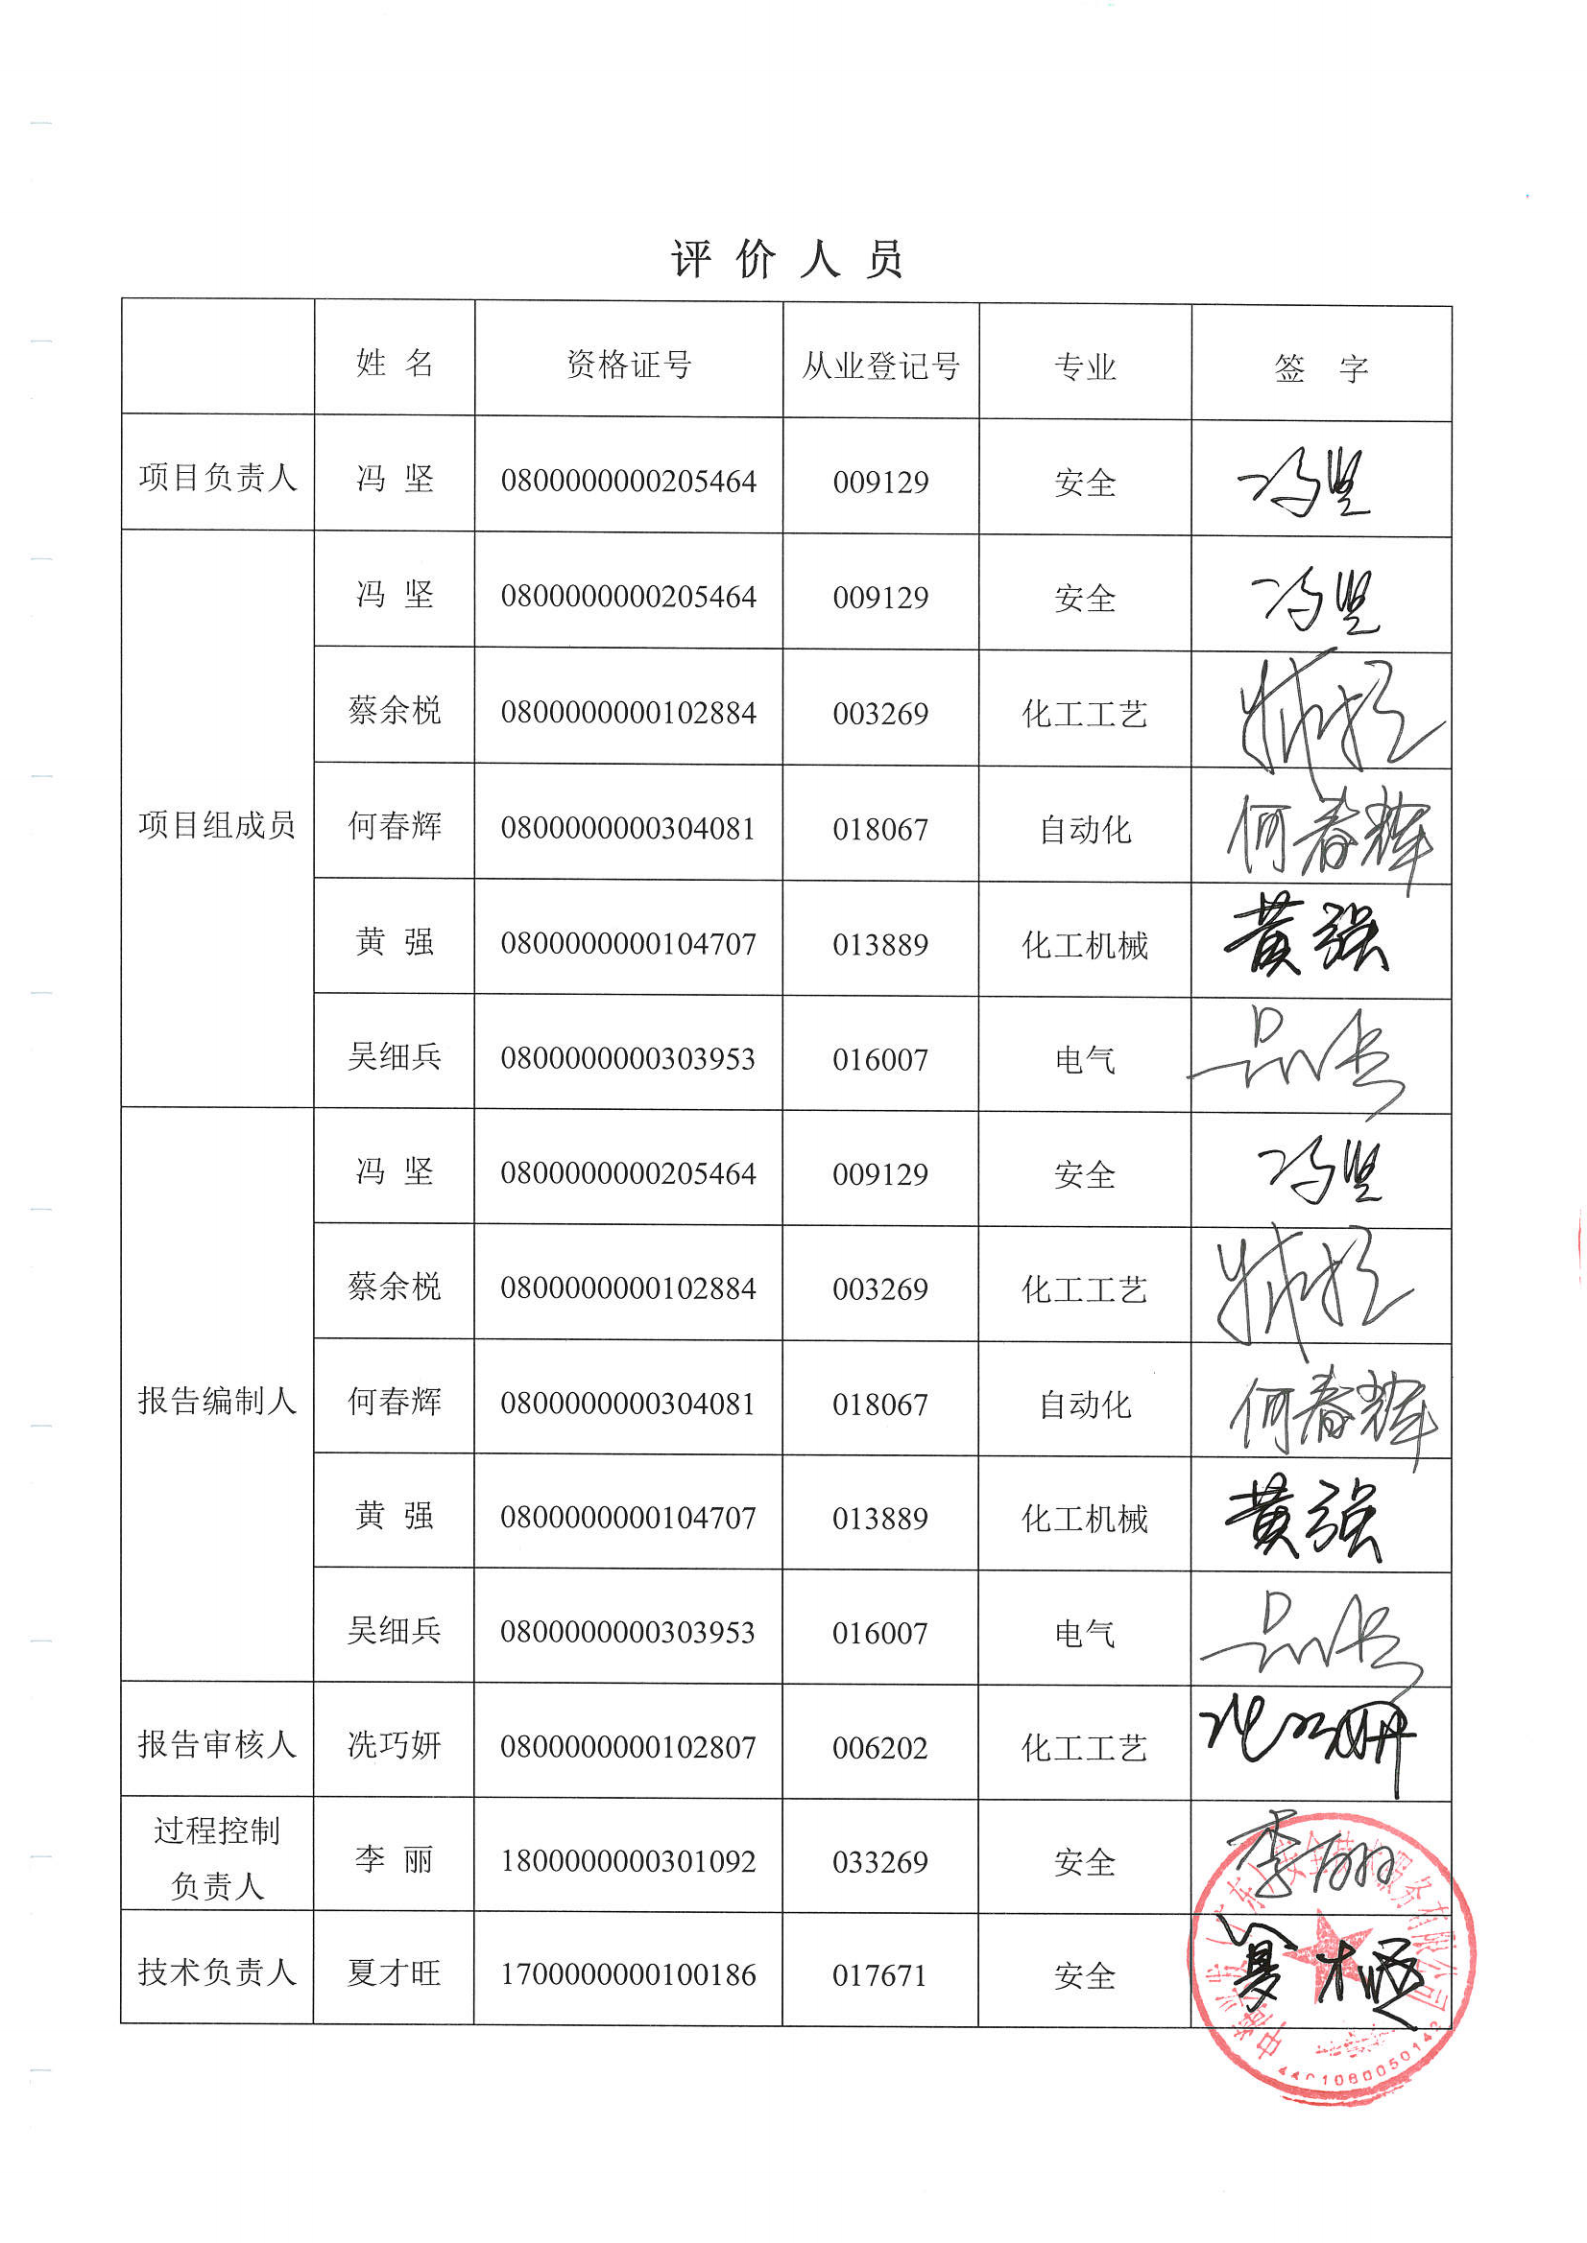 评价人员
姓名 资格证号 从业登记号 专业 签字
项目负责人 冯坚 0800000000205464 009129 安全 冯坚
项目组成员
冯坚 0800000000205464 009129 安全 冯坚
蔡余棁 0800000000102884 003269 化工工艺
何春辉 0800000000304081 018067 自动化 何春辉
黄强 0800000000104707 013889 化工机械 黄强
吴细兵 0800000000303953 016007 电气
报告编制人
冯坚 0800000000205464 009129 安全 冯坚
蔡余棁 0800000000102884 003269 化工工艺
何春辉 0800000000304081 018067 自动化 何春辉
黄强 0800000000104707 013889 化工机械 黄强
吴细兵 0800000000303953 016007 电气
报告审核人 冼巧妍 0800000000102807 006202 化工工艺
过程控制
负责人
李丽 1800000000301092 033269 安全 李丽
技术负责人 夏才旺 1700000000100186 017671 安全 夏才旺
安全技术服务有限公司